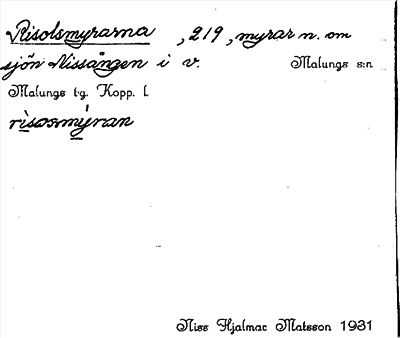 Risolsmyrarna , 219 , myrar n. om
sjön Nissången i v. Malungs s:n
Malungs tg. Kopp. l.
risosmýran
Niss Hjalmar Matsson 1931